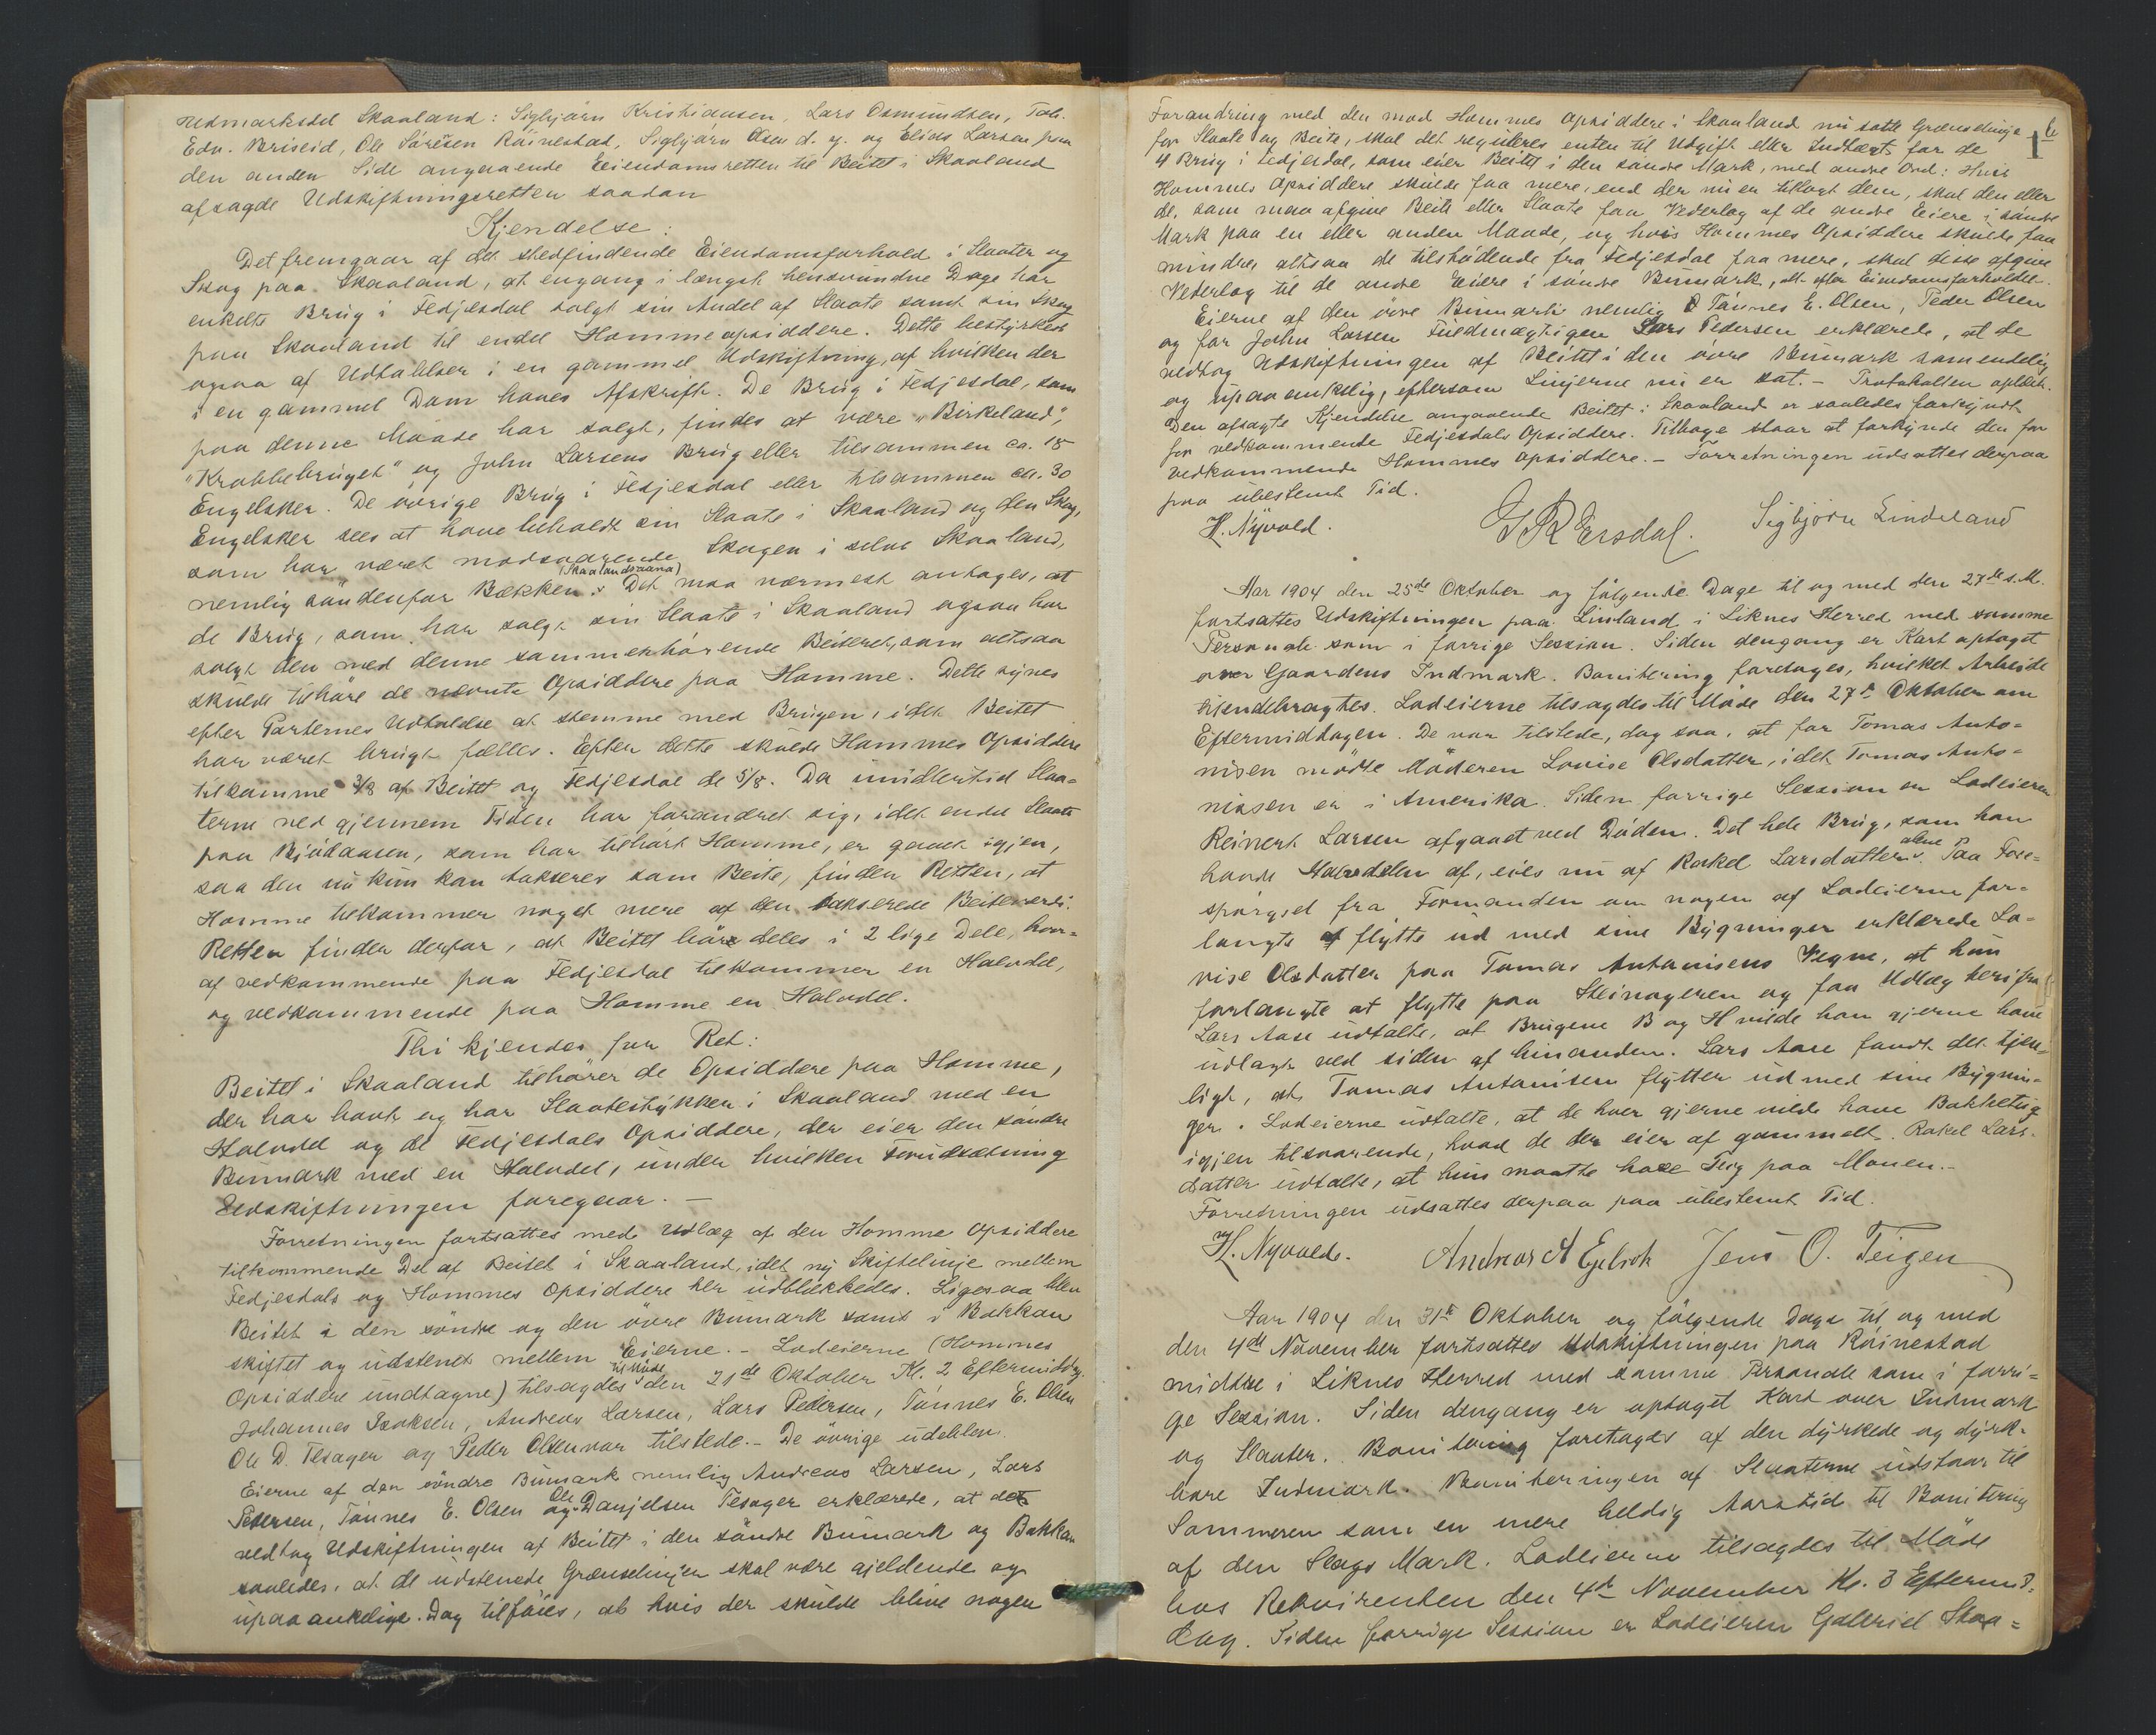 udmarksdel Skaaland: Sigbjørn Kristiansen, Lars Osmundsen, Tob.
Edv. Briseid, Ole Søresen Röinestad, Sigbjørn Olsen d. y. og Elias Larsen paa
den anden Side angaaende Eiendomsretten til Beitet i Skaaland
afsagde Udskiftningsretten saadan
Kjendelse:
Det fremgaar af det stedfindende Eiendomsforhold i Slaater og
Skog paa Skaaland, at engang i længst hensvundne Dage har
enkelte Brug i Fedjesdal solgt sin Andel af Slaate samt sin Skog
paa Skaaland til endel Hommeopsiddere. Dette bestyrkes
ogsaa af Udtalelser i en gammel Udskiftning, af hvilken der
i en gammel Dom haves Afskrift. De Brug i Fedjesdal, som
paa denne Maade har solgt, findes at være "Birkeland",
"Krabbebruget" og John Larsens Brug eller tilsammen ca. 18
Engelsker. De övrige Brug i Fedjesdal eller tilsammen ca. 30
Engelsker sees at have beholdt sin Slaate i Skaaland og den Skog,
som har været modsvarende Skogen i selve Skaaland,
nemlig söndenfor Bækken (Skaalandsaana). Det maa nærmest antages, at
de Brug, som har solgt sin Slaate i Skaaland ogsaa har
solgt den med denne sammenhörende Beiteret, som altsaa
skulde tilhöre de nævnte Opsiddere paa Homme. Dette synes
efter Parternes Udtalelse at stemme med Brugen, idet Beitet
har været brugt fælles. Efter dette skulde Hommes Opsiddere
tilkomme 3/8 af Beitet og Fedjesdal de 5/8. Da imidlertid Slaa-
terne ned gjennem Tiden har forandret sig, idet endel Slaate
paa Bjödaasen, som har tilhört Homme, er groet igjen,
saa den nu kun kan takseres som Beite, finder Retten, at
Homme tilkommer noget mere af den takserede Beiteværdi.
Retten finder derfor, at Beitet bör deles i 2 lige Dele, hvor-
af vedkommende paa Fedjesdal tilkommer en Halvdel,
og vedkommende paa Homme en Halvdel.
Thi kjendes for Ret:
Beitet i Skaaland tilhörer de Opsiddere paa Homme,
der har havt og har Slaatestykker i Skaaland med en
Halvdel og de Fedjesdals Opsiddere, der eier den söndre
Bumark med en Halvdel, under hvilken Forudsætning
Udskiftningen foregaar. —
Forretningen fortsattes med Udlæg af den Homme Opsiddere
tilkommende Del af Beitet i Skaaland, idet ny Skiftelinje mellem
Fedjesdals og Hommes Opsiddere blev udblekkedes. Ligesaa blev
Beitet i den söndre og den övre Bumark samt i Bakkan
skiftet og udstenet mellem Eierne. – Lodeierne (Hommes
Opsiddere undtagne) tilsagdes til Möde den 21de Oktober Kl. 2 Eftermiddag.
Johannes Isaksen, Andreas Larsen, Lars Pedersen, Tönnes E. Olsen
Ole D. Tesager og Peder Olsen var tilstede. – De övrige udeblev.
Eierne af den söndre Bumark nemlig Andreas Larsen, Lars
Pedersen, Tönnes E. Olsen og Ole Danjelsen Tesager erklærede, at de
vedtog Udskiftningen af Beitet i den söndre Bumark og Bakkan
saaledes, at de udstenede Grænselinjer skal være gjeldende og
upaaankelige. Dog tilföies, at hvis der skulde blive nogen
Forandring med den mod Hommes Opsiddere i Skaaland nu satte Grændselinje
for Slaate og Beite, skal det reguleres enten til Udgift eller Indtægt for de
4 Brug i Fedjesdal, som eier Beitet i den söndre Mark, med andre Ord: Hvis
Hommes Opsiddere skulde faa mere, end der nu er tillagt dem, skal den eller
de, som maa afgive Beite eller Slaate faa Vederlag af de andre Eiere i söndre
Mark paa en eller anden Maade, og hvis Hommes Opsiddere skulde faa
mindre, altsaa de tilstödende fra Fedjesdal faa mere, skal disse afgive
Vederlag til de andre Eiere i söndre Bumark, alt efter Eiendomsforholdet.
Eierne af den övre Bumark nemlig Tönnes E. Olsen, Peder Olsen
og for John Larsen Fuldmægtigen Lars Pedersen erklærede, at de
vedtog Udskiftningen af Beitet i den övre Bumark som endelig
og upaaankelig, eftersom Linjerne nu er sat. – Protokollen oplæst.
Den afsagte Kjendelse angaaende Beitet i Skaaland er saaledes forkyndt
for vedkommende Fedjesdals Opsiddere. Tilbage staar at forkynde den for
vedkommende Hommes Opsiddere. – Forretningen udsattes derpaa
paa ubestemt Tid.
H. Nyvold. G R Ersdal. Sigbjörn Lindeland
Aar 1904 den 25de Oktober og fölgende Dage til og med den 27de s. M.
fortsattes Udskiftningen paa Linland i Liknes Herred med samme
Personale som i forrige Session. Siden dengang er Kart optaget
over Gaardens Indmark. Bonitering foretoges, hvilket Arbeide
tilendebragtes. Lodeierne tilsagdes til Möde den 27de Oktober om
Eftermiddagen. De var tilstede, dog saa, at for Tomas Anto-
nisen mödte Moderen Lovise Olsdatter, idet Tomas Anto-
nissen er i Amerika. Siden forrige Session er Lodeieren
Reinert Larsen afgaaet ved Döden. Det hele Brug, som han
havde Halvdelen af, eies nu af Rakel Larsdatter alene. Paa Fore-
spörgsel fra Formanden om nogen af Lodeierne for-
langte at flytte ud med sine Bygninger erklærede Lo-
vise Olsdatter paa Tomas Antonisens Vegne, at hun
forlangte at flytte paa Steinageren og faa Udlæg herifra
Lars Aase udtalte, at Brugene B og H vilde han gjerne have
udlagt ved siden af hinanden. Lars Aase fandt det tjen-
ligt, at Tomas Antonisen flytter ud med sine Bygnin-
ger. Lodeierne udtalte, at de hver gjerne vilde have Bakketeig
igjen tilsvarende, hvad de der eier af gammelt. Rakel Lars-
datter udtalte, at hun maatte have Teig paa Monen. –
Forretningen udsattes derpaa paa ubestemt Tid.
H. Nyvold. Andreas A Egeland Jens O. Teigen
Aar 1904 den 31te Oktober og fölgende Dage til og med
den 4de November fortsattes Udskiftningen paa Röinestad
midtre i Liknes Herred med samme Personale som i forri-
ge Session. Siden dengang er optaget Kart over Indmark
og Slaater. Bonitering foretoges af den dyrkede og dyrk-
bare Indmark. Boniteringen af Slaaterne udstaar til
Sommeren som en mere heldig Aarstid til Bonitering
af den Slags Mark. Lodeierne tilsagdes til Möde
hos Rekvirenten den 4de November Kl. 3 Eftermid-
dag. Siden forrige Session er Lodeieren Gabriel Skaa-